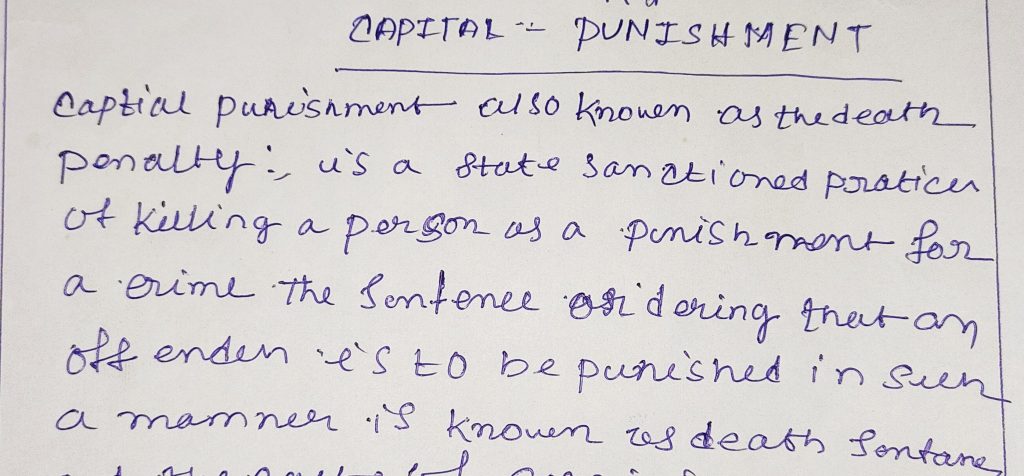 CAPITAL :- PUNISHMENT
Captial punishment also known as the death
penalty:, is a state sanctioned pratices
of killing a person as a punishment for
a crime the sentence ordering that an
offender is to be punished in such
a mamner is known as death sontane